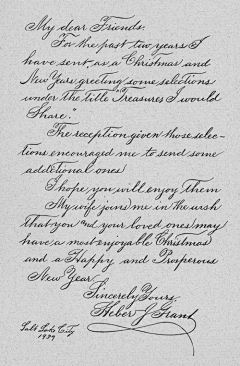 My dear Friends.
For the past two years I
have sent as a Christmas and
New Years greeting some selections
under the title "Treasures I would
Share."
The reception given those selec-
tions encouraged me to send some
additional ones
I hope you will enjoy them
My wife joins me in the wish
that you and your loved ones may
have a most enjoyable Christmas
and a Happy and Prosperous
New Year.
Sincerely Yours,
Heber J Grant
Salt Lake City
1939